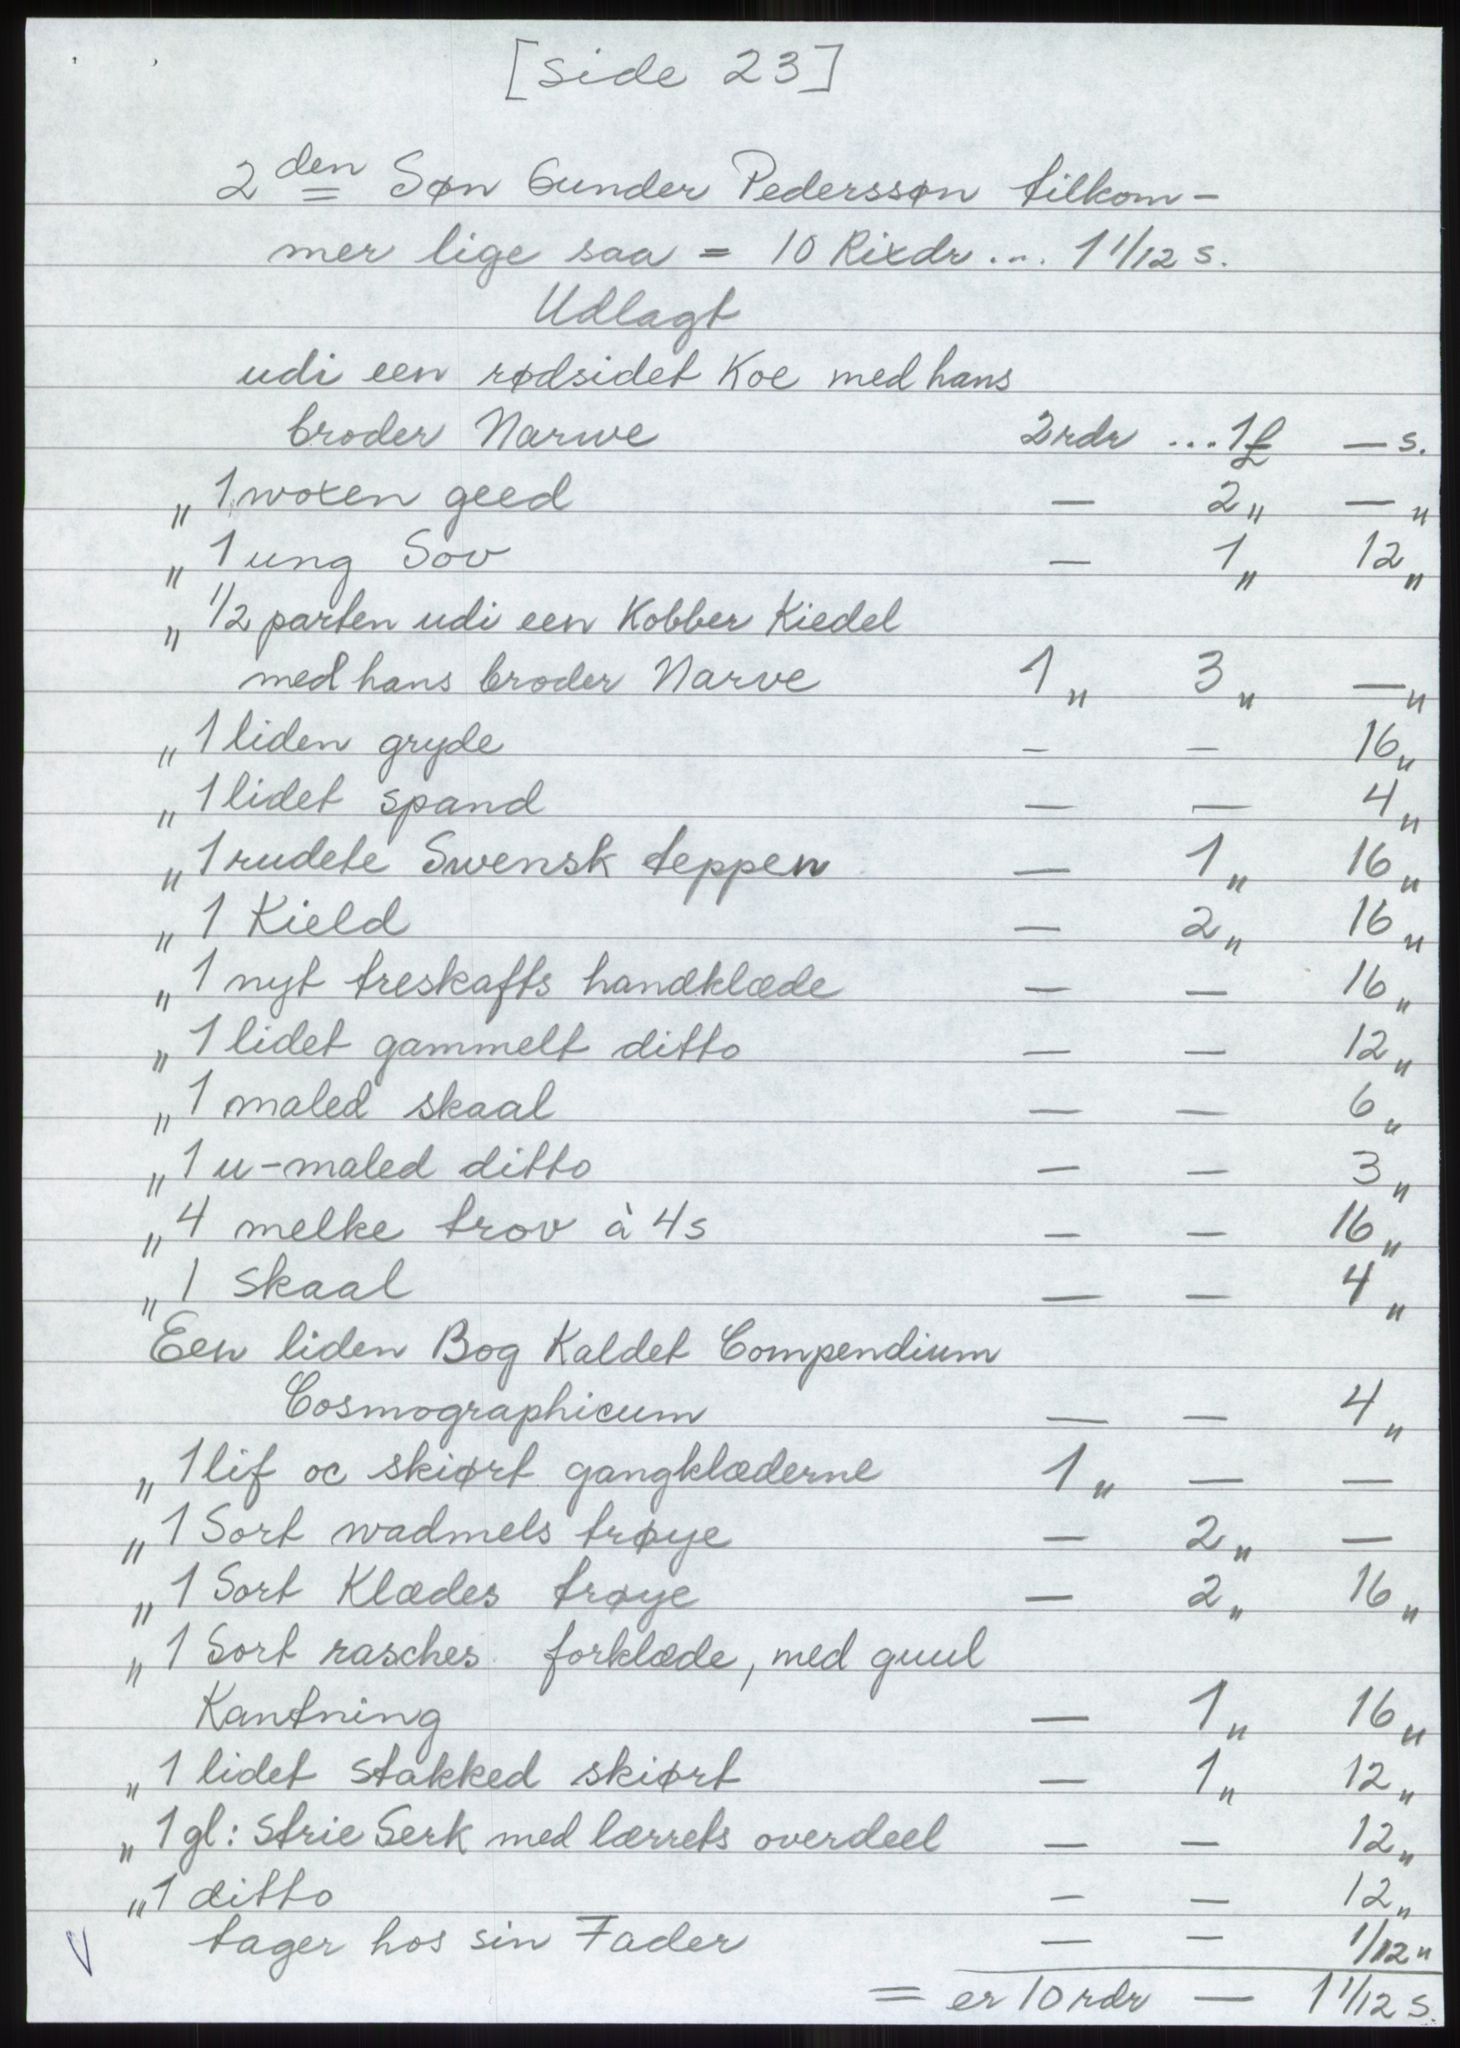 [side 23]
2den Søn Gunder Pederssøn tilkom-
mer lige saa = 10 Rixdr ... 1 1/12 s.
Udlagt
udi een rødsidet Koe med hans
broder Narwe 2rdr ...1£ — s.
„ 1 woxen geed — 2„ — „
„ 1 ung Sov — 1„ 12„
„ 1/2 parten udi een Kobber Kiedel
med hans broder Narve 1„ 3„ — „
„ 1 liden gryde — — 16„
„ 1 lidet spand — — 4„
„ 1 rudete Swensk teppen — 1„ 16„
„ 1 Kield — 2„ 16„
„ 1 nyt treskafts handklæde — — 16„
„ 1 lidet gammelt ditto — — 12„
„ 1 maled skaal — — 6„
„ 1 u-maled ditto — — 3„
„ 4 melke trov à 4s — — 16„
„ 1 skaal — — 4„
Een liden Bog Kaldet Compendium
Cosmographicum — — 4„
„ 1 lif oc skiørt gangklæderne 1„ — —
„ 1 Sort wadmels trøye — 2„ —
„ 1 Sort Klædes trøye — 2„ 16„
„ 1 Sort rasches forklæde, med guul
Kantning — 1„ 16„
„ 1 lidet stakked skiørt — 1„ 12„
„ 1 gl: Strie Serk med lærrets overdeel — — 12„
„ 1 ditto — — 12„
tager hos sin Fader — — 1/12„
= er 10 rdr — 1 1/12 s.